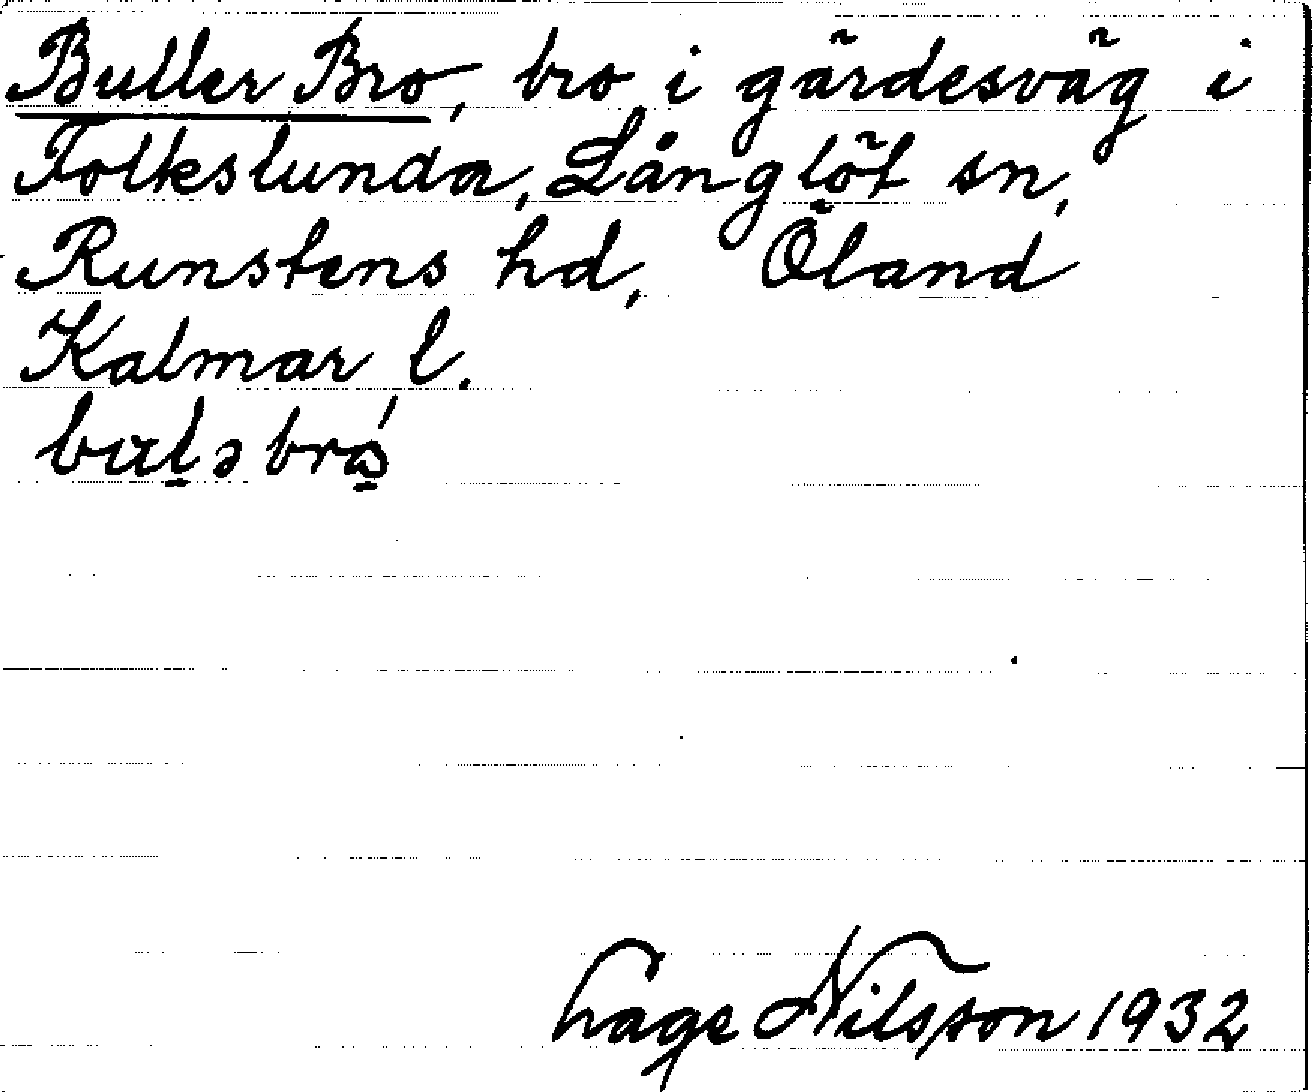 Buller Bro, bro i gärdesväg i
Folkslunda, Långlöt sn,
Runstens hd, Öland
Kalmar l.
Hage Nilsson 1932